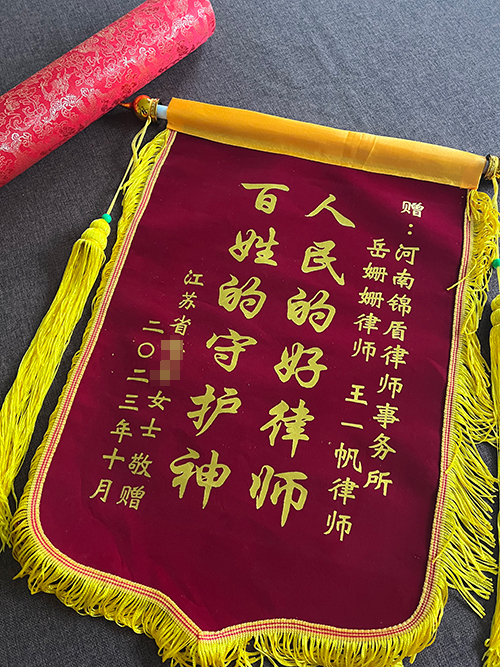 赠：河南锦盾律师事务所
岳姗姗律师 王一帆律师
人民的好律师
百姓的守护神
江苏省女士 敬赠
二〇二三年十月